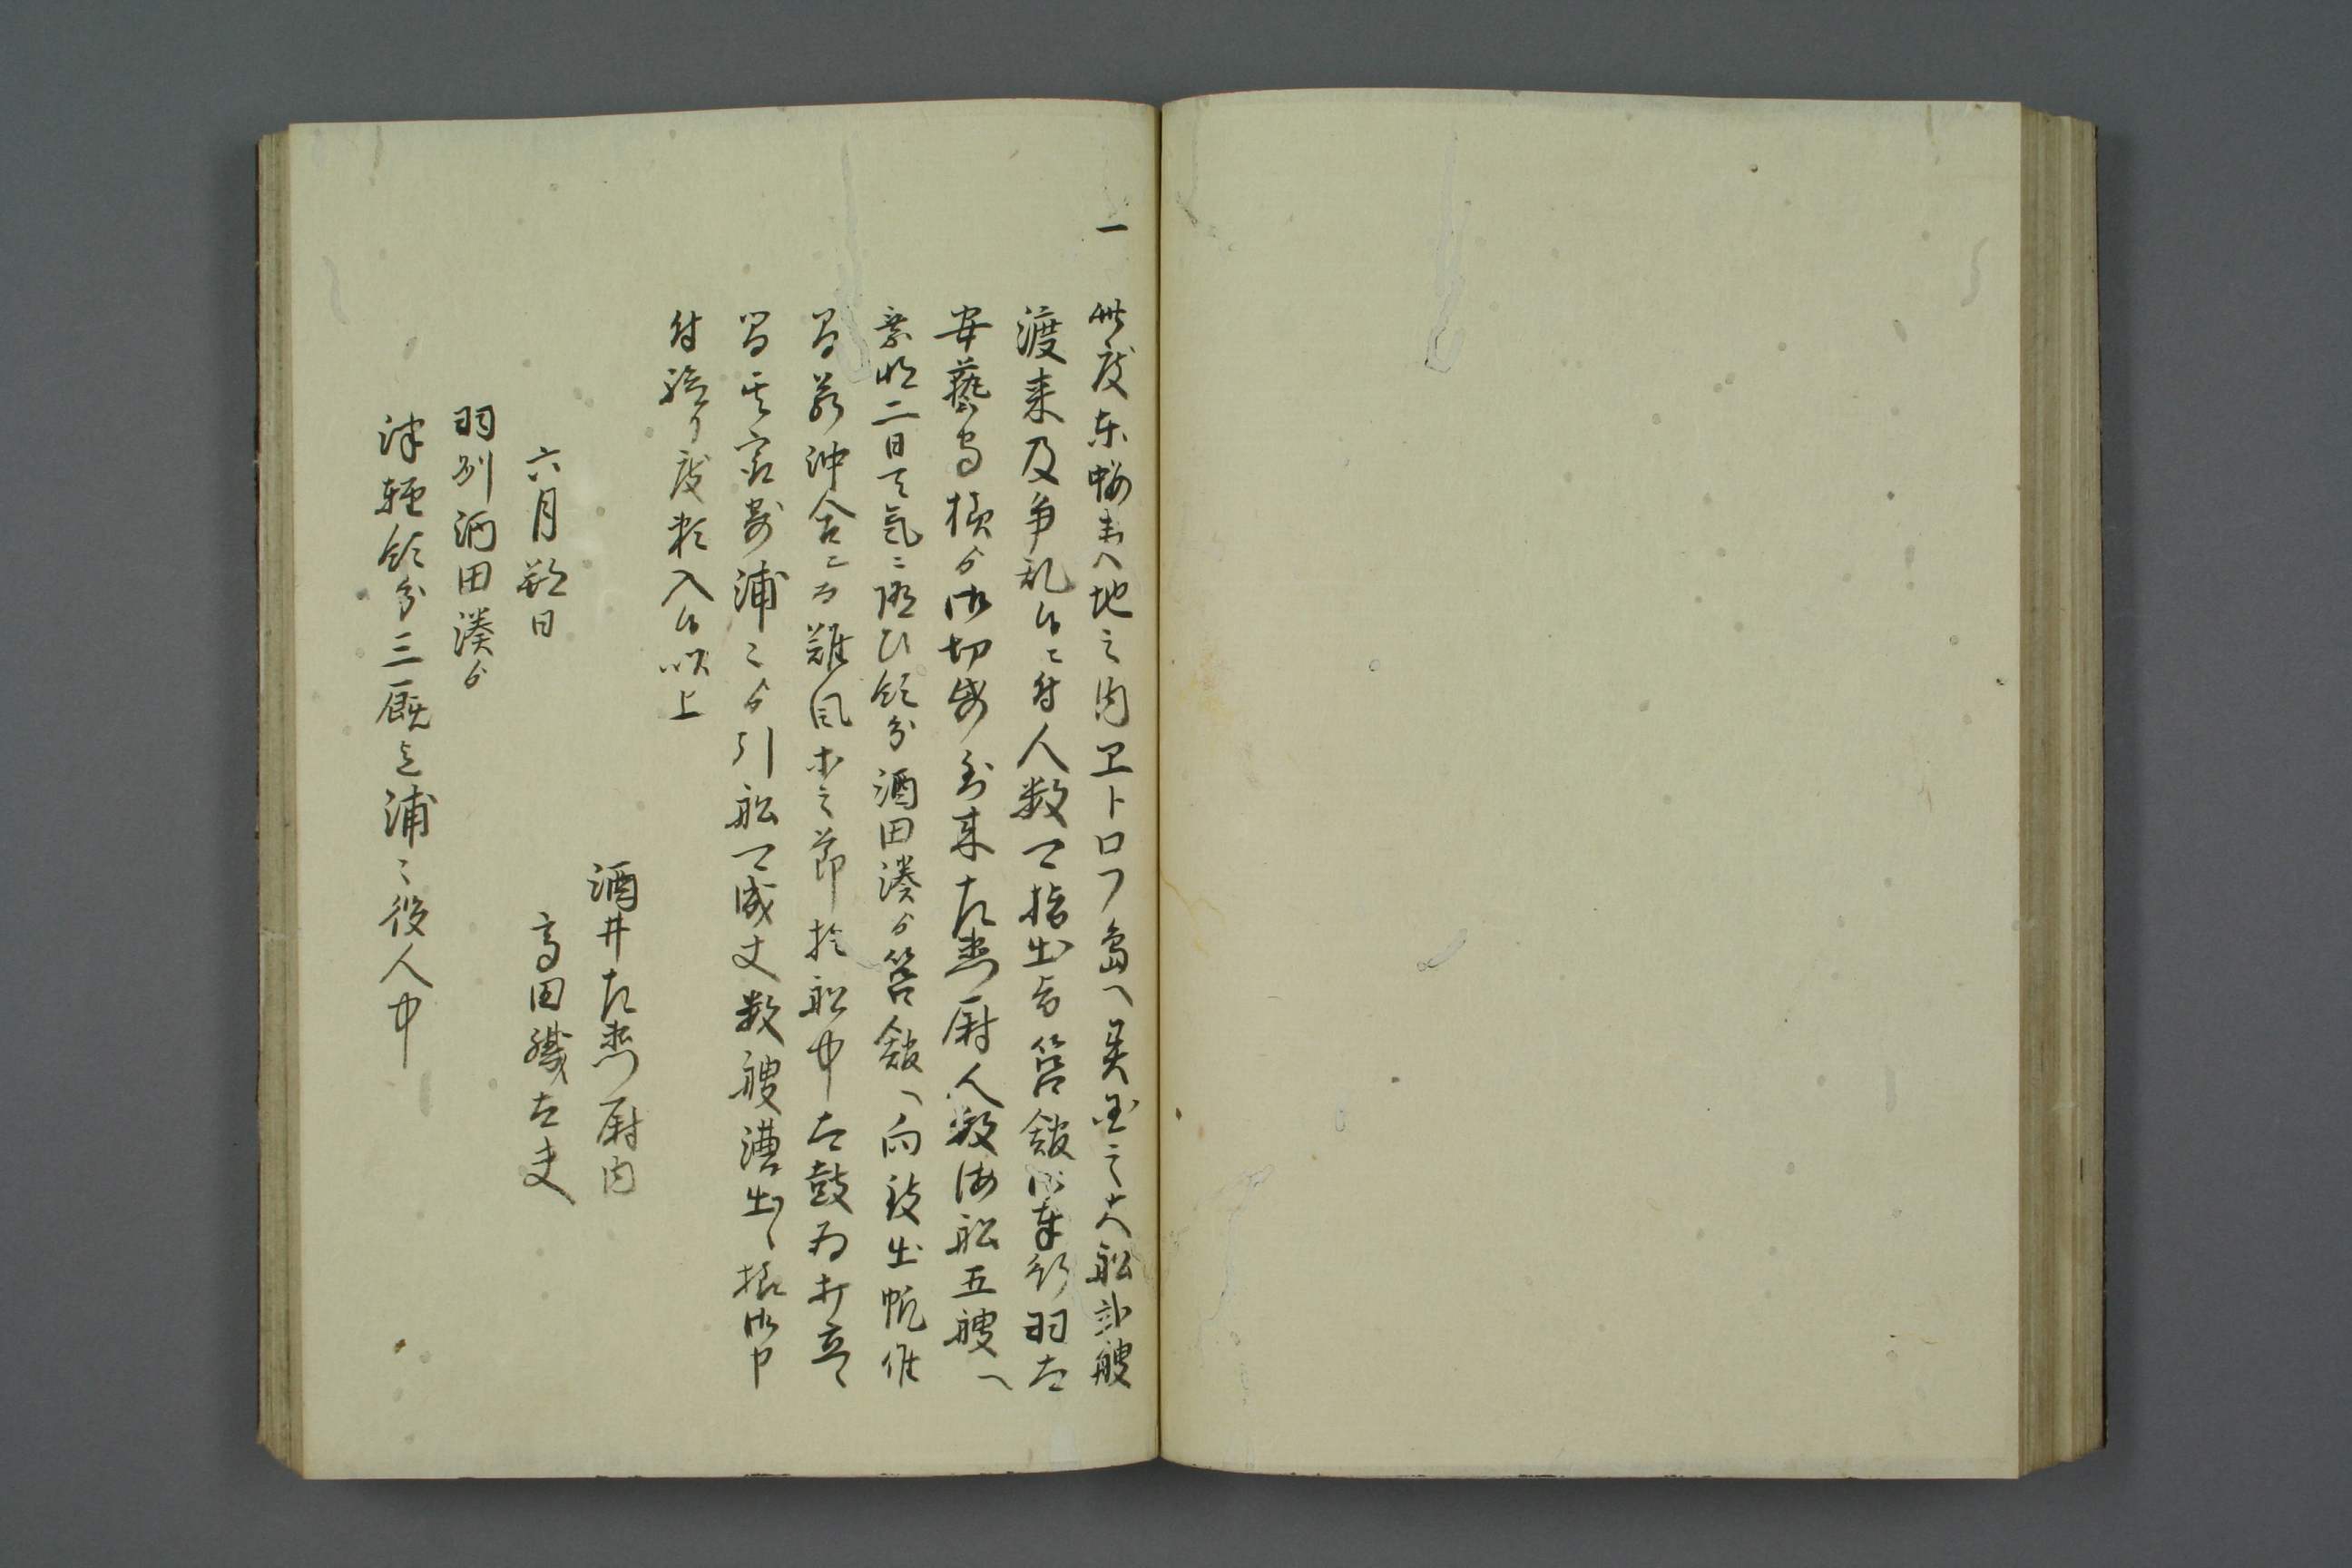 一 此度東蝦夷地之内ヱトロフ島へ異国之大船弐艘
渡来及争乱候ニ付人数可指出旨箱館御奉行羽太
安藝守様ゟ御切紙到来左衛門尉人数海船五艘へ
乗明二日天気ニ随ひ領分酒田湊ゟ箱館へ向致出帆候
間若沖合ニ而難風等之節於船中太鼓為打立
間其最寄浦々ゟ引船可成丈数艘漕出候様御申
付被下度頼入候以上
酒井左衛門尉内
六月朔日 高田磯太夫
羽州酒田湊ゟ
津軽領分三厩迄浦々役人中